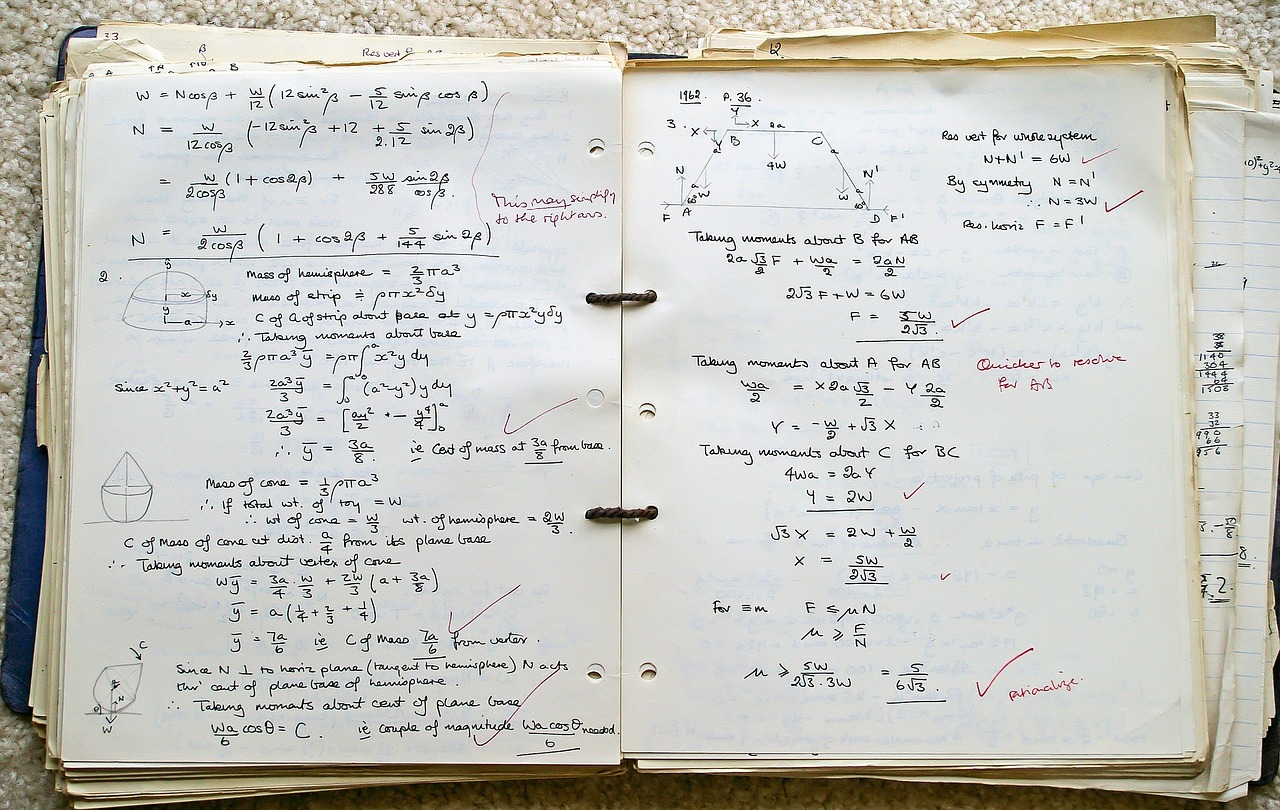 33.
β
Res vert
W = Ncosβ + W/12 (12 sin²β − 5/12 sinβ cosβ)
N = W/12cosβ (−12sin²β + 12 + 5/2.12 sin2β)
= W/2cosβ (1 + cos2β) + 5W/288 sin2β/cosβ.
This may simplify
to the right ans.
N = W/2cosβ (1 + cos2β + 5/144 sin2β)
2.
Mass of hemisphere = 2/3 πa³
Mass of strip ≑ ρπx²δy
C of G of strip about base at y = ρπx²yδy
∴ Taking moments about base
2/3 ρπa³ȳ = ρπ∫₀ᵃ x²y dy
Since x²+y²=a² 2a³ȳ/3 = ∫₀ᵃ (a²−y²) y dy
2a³ȳ/3 = [ay²/2 − y⁴/4]₀ᵃ
∴ ȳ = 3a/8 ie Cent of mass at 3a/8 from base.
Mass of cone = 1/3 ρπa³
∴ If total wt. of toy = W
∴ wt of cone = W/3 wt. of hemisphere = 2W/3.
C of Mass of cone at dist. a/4 from its plane base
∴ Taking moments about vertex of cone
Wȳ = 3a/4 . W/3 + 2W/3 (a + 3a/8)
ȳ = a(1/4 + 2/3 + 1/4)
ȳ = 7a/6 ie C of Mass 7a/6 from vertex.
C
Since N ⊥ to horiz plane (tangent to hemisphere) N acts
thro' cent of plane base of hemisphere.
∴ Taking moments about cent of plane base
Wa/6 cosθ = C. ie couple of magnitude Wa cosθ/6 needed.
θ N
W
12.
1962. P. 36.
Y
X 2a
3. X B C
Y a 4W a
N a W W a N'
F A 60° 60° D F'
Res vert for whole system
N+N' = 6W
By symmetry N = N'
∴ N = 3W
Res. horiz F = F'
Taking moments about B for AB
2a √3/2 F + Wa/2 = 2aN/2
2√3 F + W = 6W
F = 5W/2√3.
Taking moments about A for AB
Quicker to resolve
for AB
Wa/2 = X 2a √3/2 − Y 2a/2
Y = −W/2 + √3 X
Taking moments about C for BC
4Wa = 2aY
Y = 2W
√3 X = 2W + W/2
X = 5W/2√3
For ≡m F ≤ μN
μ ≥ F/N
μ ≥ 5W/2√3.3W = 5/6√3.
rationalize.
38
38
1140
304
1444
64
1508
33
32
990
66
956